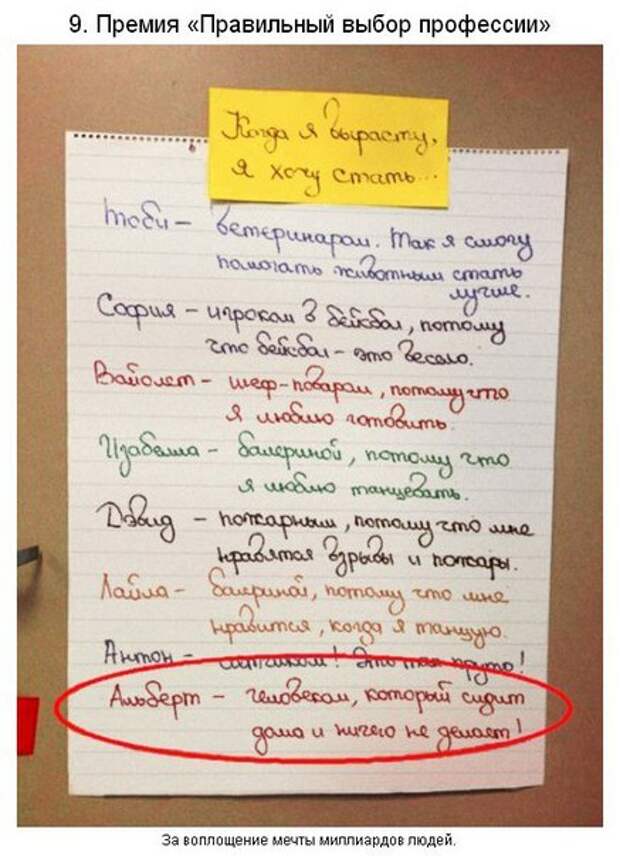 9. Премия «Правильный выбор профессии»
Когда я вырасту,
я хочу стать...
Тоби - ветеринаром. Так я смогу
помогать животным стать
лучше.
София - игроком в бейсбол, потому
что бейсбол - это весело.
Вайолет - шеф-поваром, потому что
я люблю готовить.
Изабелла - балериной, потому что
я люблю танцевать.
Дэвид - пожарным, потому что мне
нравятся взрывы и пожары.
Лайла - балериной, потому что мне
нравится, когда я танцую.
Антон - летчиком! Это так круто!
Альберт - человеком, который сидит
дома и ничего не делает!
За воплощение мечты миллиардов людей.